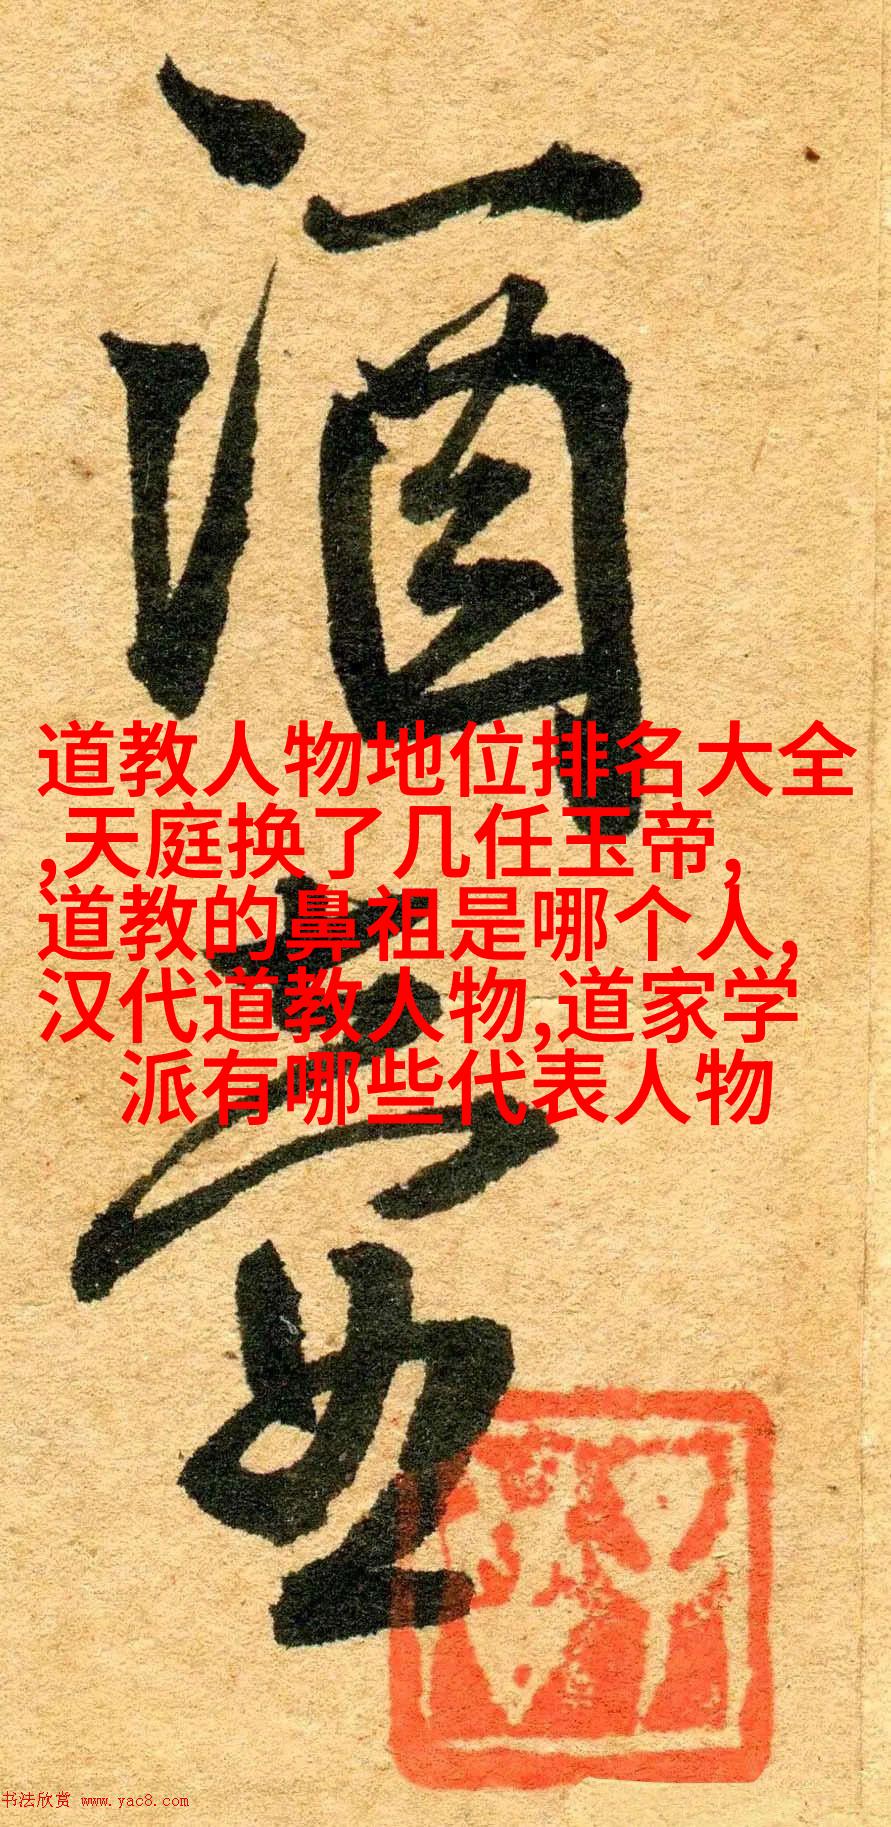 酒
道教人物地位排名大全
,天庭换了几任玉帝,
道教的鼻祖是哪个人,
汉代道教人物,道家学
派有哪些代表人物
书法欣赏 www.yac8.com